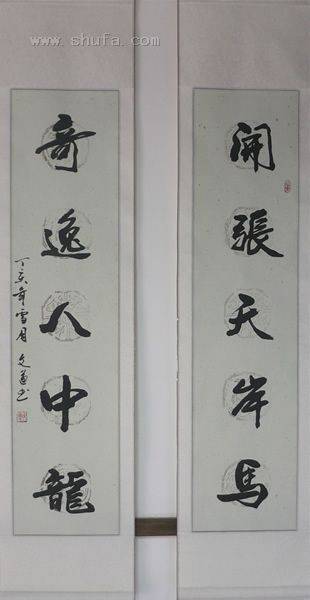 開張天岸馬
奇逸人中龍
丁亥年雪月 文蓬书
www.shufa.com